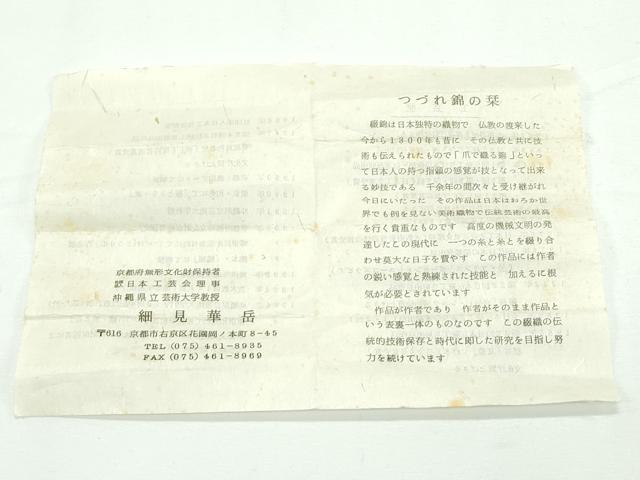 つづれ錦の栞
綴錦は日本独特の織物で 仏教の渡来した
今から1300年も昔に その仏教と共に技
術も伝えられたもので「爪で織る錦」といっ
て日本人の持つ指頭の感覚が技となって出来
る妙技である 千余年の間次々と受け継がれ
今日にいたった その作品は日本はおろか世
界でも例を見ない美術織物で伝統芸術の最高
を行く貴重なものです 高度の機械文明の発
達したこの現代に 一つの糸と糸とを綴り合
わせ莫大な日子を費やす この作品には作者
の鋭い感覚と熟練された技能と 加えるに根
気が必要とされています
作品が作者であり 作者がそのまま作品と
いう表裏一体のものなのです この綴織の伝
統的技術保存と時代に即した研究を目指し努
力を続けています
京都府無形文化財保持者
日本工芸会理事
沖縄県立芸術大学教授
細見華岳
〒616 京都市右京区花園岡ノ本町8-45
TEL (075) 461-8935
FAX (075) 461-8969